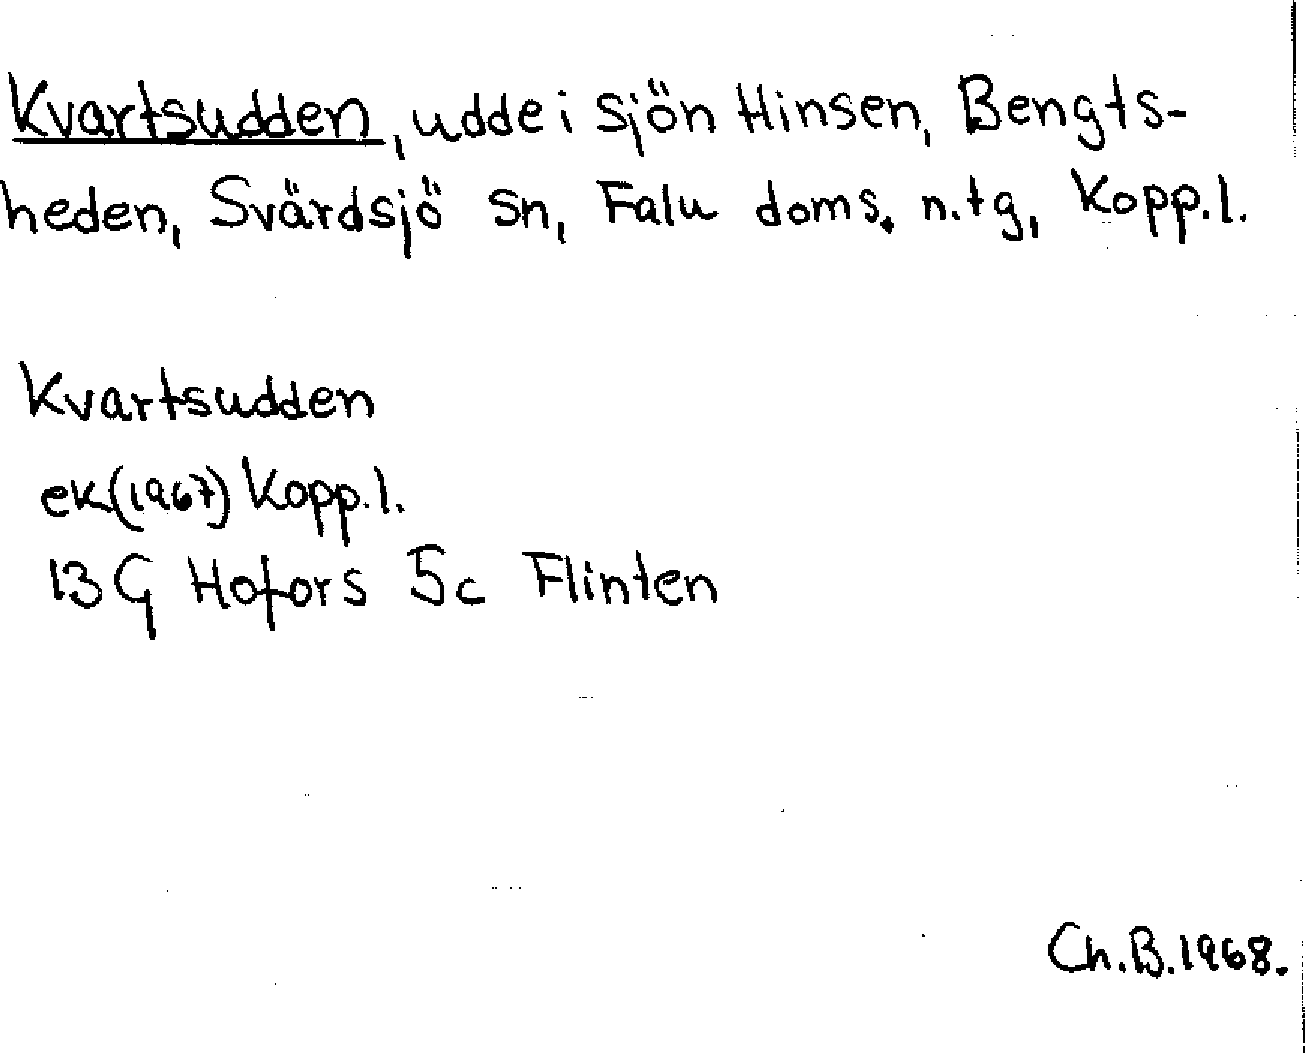 Kvartsudden, udde i sjön Hinsen, Bengts-
heden, Svärdsjö sn, Falu doms. n. tg, Kopp. l.
Kvartsudden
ek (1967) Kopp. l.
13 G Hofors 5c Flinten
Ch. B. 1968.